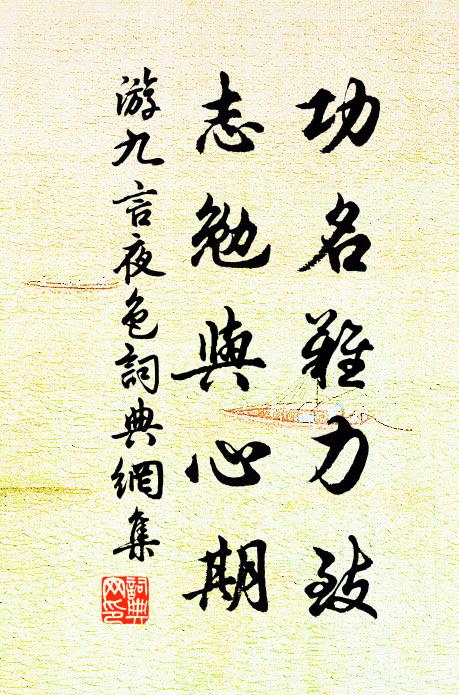 功名難力致
志勉與心期
游九言夜色詞典網集
詞典
网印